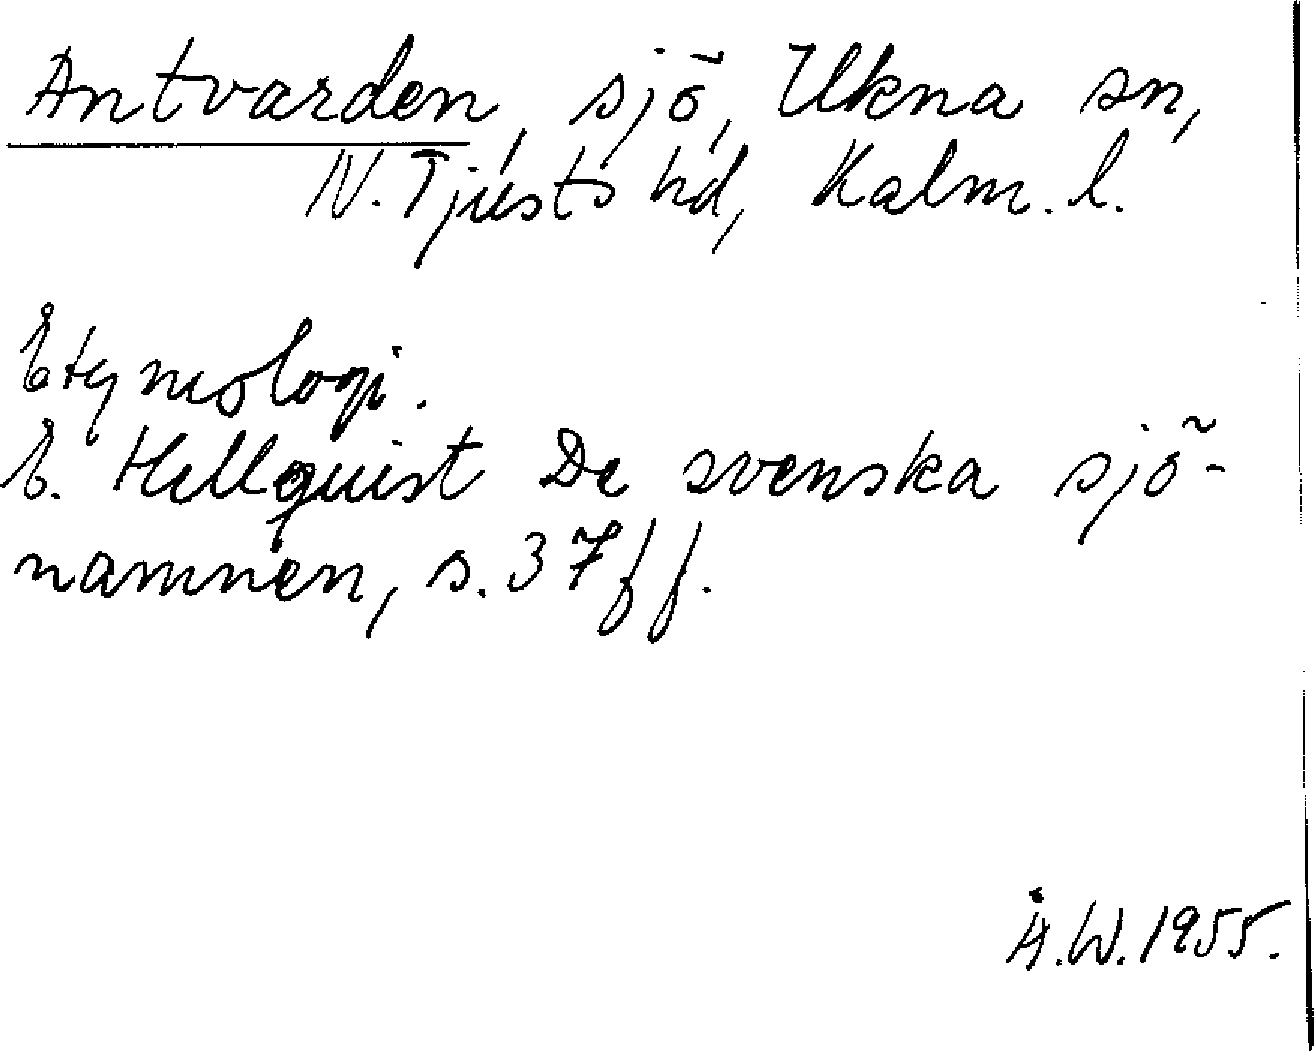 Antvarden, sjö, Ukna sn,
N. Tjusts hd, Kalm. l.
Etymologi.
E. Hellquist De svenska sjö-
namnen, s. 37 ff.
Å.W. 1955.